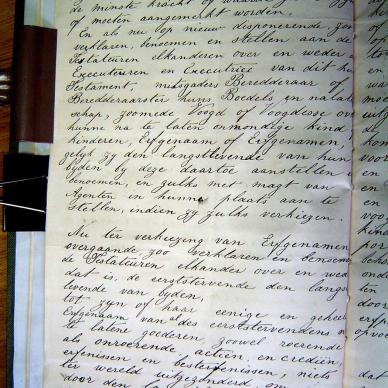 de minste kracht of waarde
of moeten aangemerkt worden.
En als nu op nieuw disponerende zoo
verklaren, benoemen en stellen aan de
Testateuren elkanderen over en weder
Executeuren en Executrice van dit hun
Testament, mitsgaders Beredderaar of
Beredderaarster huns Boedels en nalaten
schap, zoomede Voogd of Voogdesse over
hunne na te laten onmondige kind
kinderen, Erfgenaam of Erfgenamen,
gelyk zy den langstlevende van hun
byden by deze daartoe aanstellen
benoemen, en zulks met magt van
Agenten in hunne plaats aan te
stellen, indien zy zulks verkiezen.
Nu ter verkiezing van Erfgenamen
overgaande zoo verklaren en benoemen
de Testateuren elkander over en weder
dat is, de eerststervende den langst
levende van byden,
tot zyn of haar eenige en geheele
Erfgenaam van al des eerststervendens
te latene goederen, zoowel roerende
als onroerende, actien, en crediten
erfenissen en besterfenissen, niets
ter wereld uitgezonderd om
door den